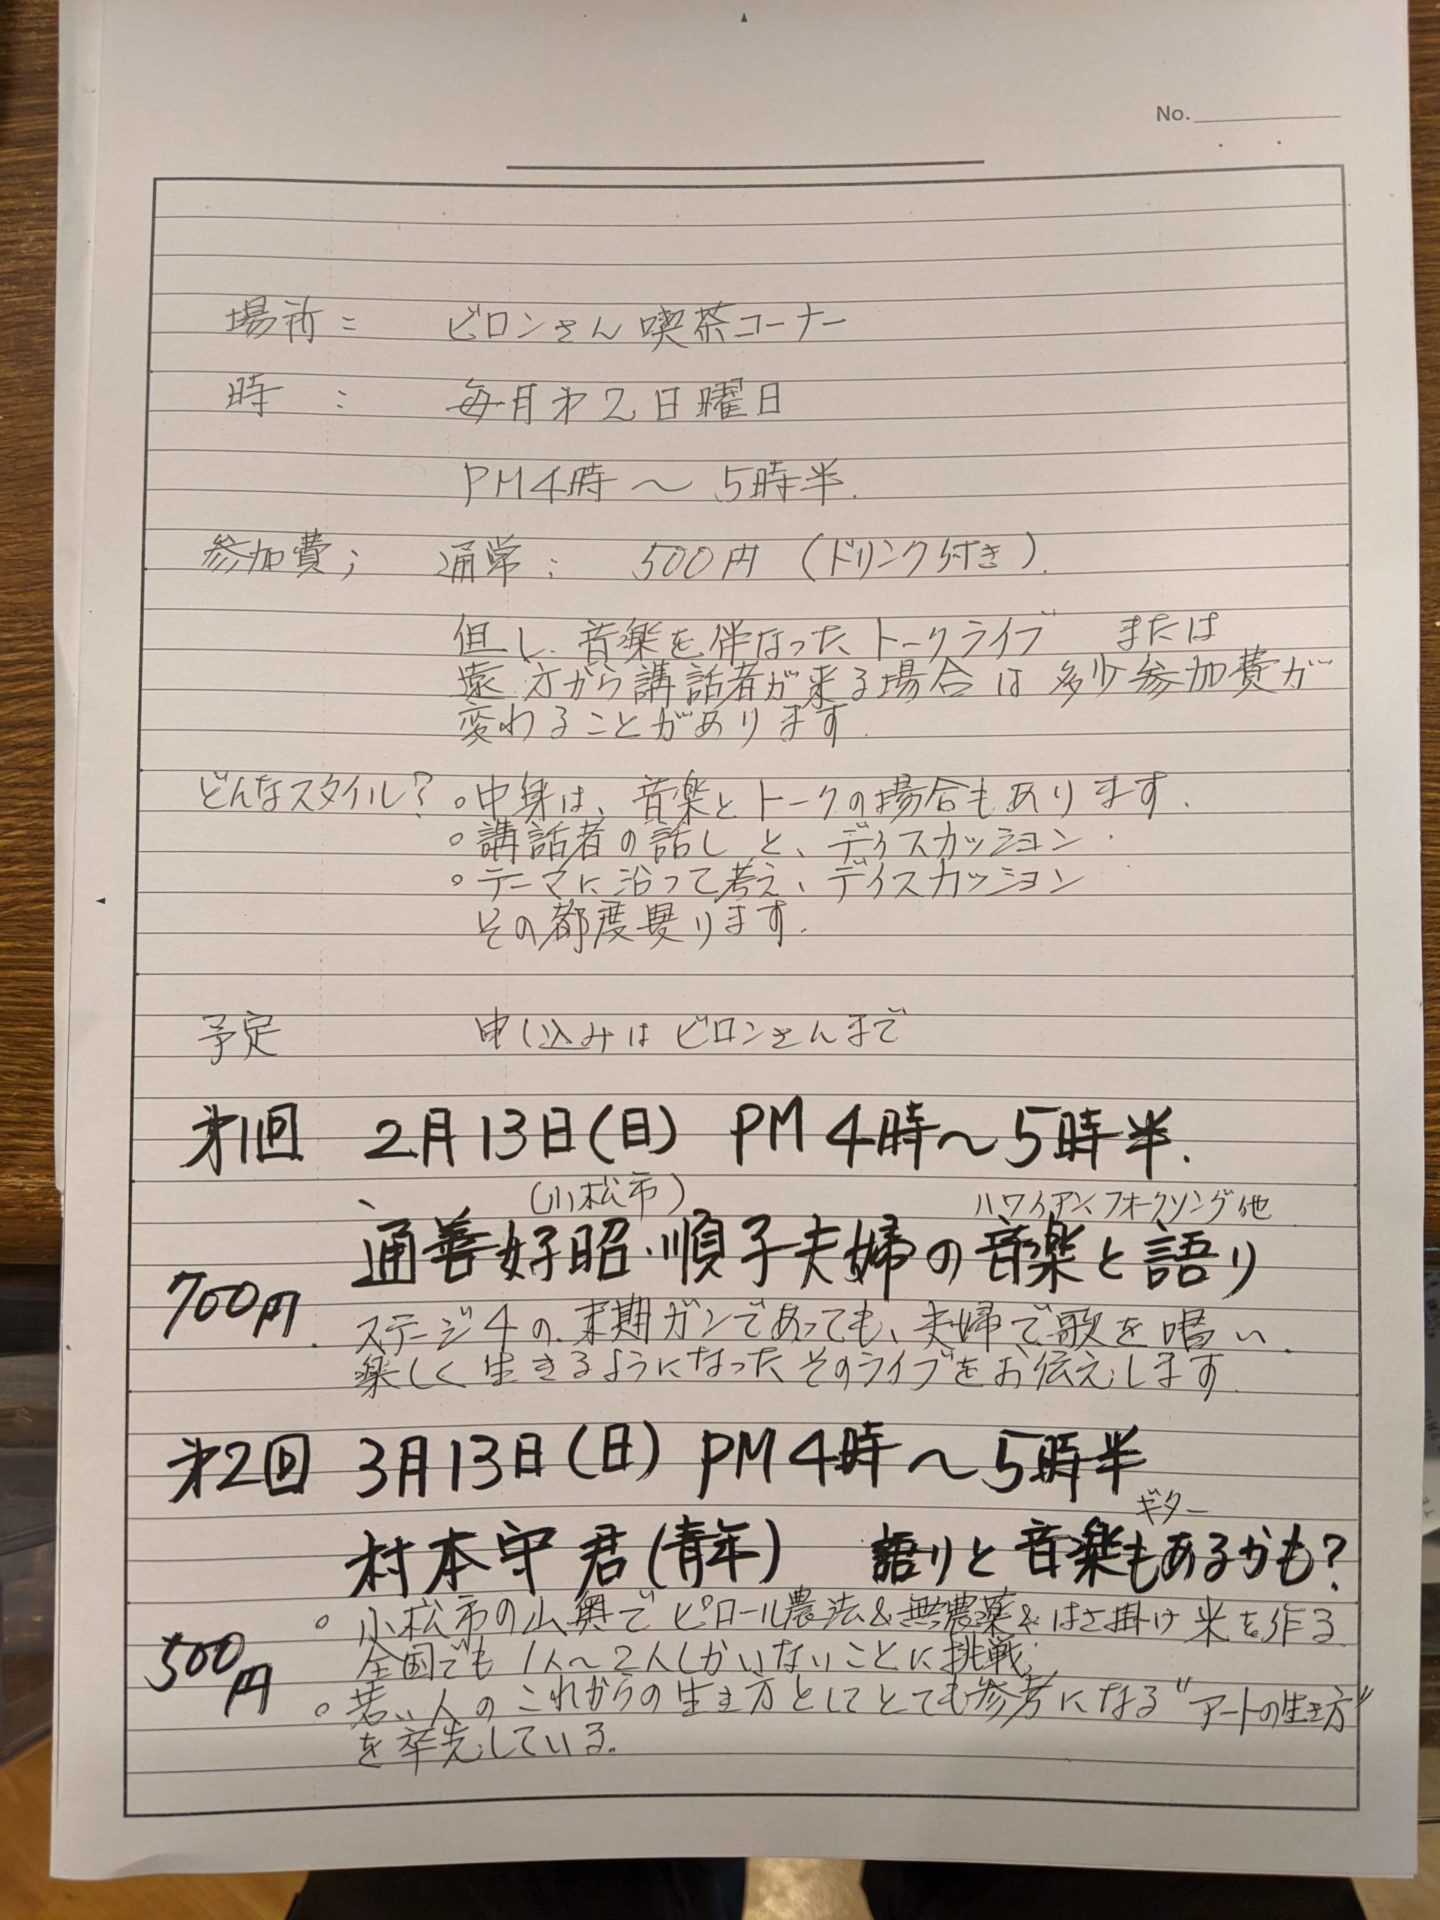 No.
場所： ビロンさん喫茶コーナー
時： 毎月才2日曜日
PM4時～5時半.
参加費； 通常： 500円（ドリンク付き）.
但し、音楽を伴なったトークライブ または
遠方から講話者が来る場合は多少参加費が
変わることがあります.
どんなスタイル？ 。中身は、音楽とトークの場合もあります.
。講話者の話しと、ディスカッション.
。テーマに沿って考え、ディスカッション
その都度異ります.
予定 申し込みはビロンさんまで
才1回 2月13日(日) PM4時～5時半.
(小松市) ハワイアン、フォークソング他
通善好昭・順子夫婦の音楽と語り
700円.
ステージ4の、末期ガンであっても、夫婦で歌を唱い、
楽しく生きるようになったそのライブをお伝えします
才2回 3月13日(日) PM4時～5時半
ギター
村本守君(青年) 語りと音楽もあるかも?
。小松市の山奥でピロール農法&無農薬&はさ掛け米を作る
全国でも1人～2人しかいないことに挑戦.
500円
。若い人のこれからの生き方としてとても参考になる"アートの生き方"
を卒先している.